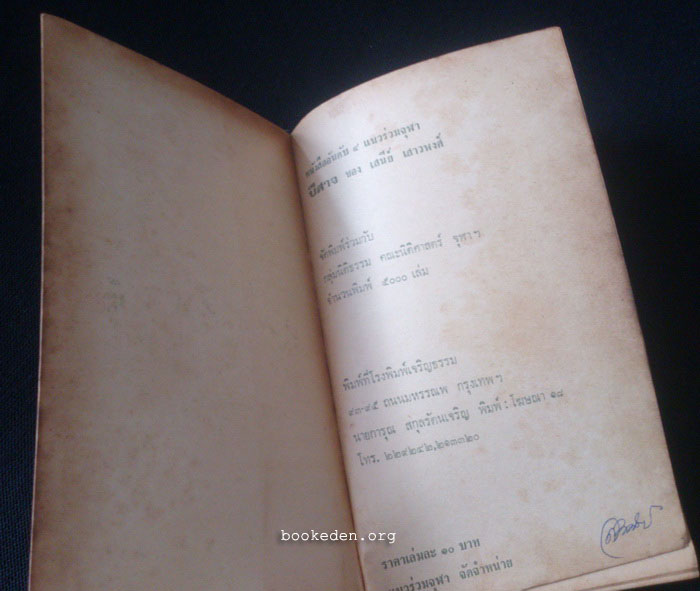 หนังสืออันดับ ๔ แนวร่วมจุฬา
ปีศาจ ของ เสนีย์ เสาวพงศ์
จัดพิมพ์ร่วมกับ
กลุ่มนิติธรรม คณะนิติศาสตร์ จุฬาฯ
จำนวนพิมพ์ ๕๐๐๐ เล่ม
พิมพ์ที่โรงพิมพ์เจริญธรรม
ถนนมหรรณพ กรุงเทพฯ
นายการุณ สกุลรัตนเจริญ พิมพ์ : โฆษณา ๑๘
โทร. ๒๒๔๒๔๒,๒๑๓๓๒๐
ราคาเล่มละ ๑๐ บาท
แนวร่วมจุฬา จัดจำหน่าย
bookeden.org